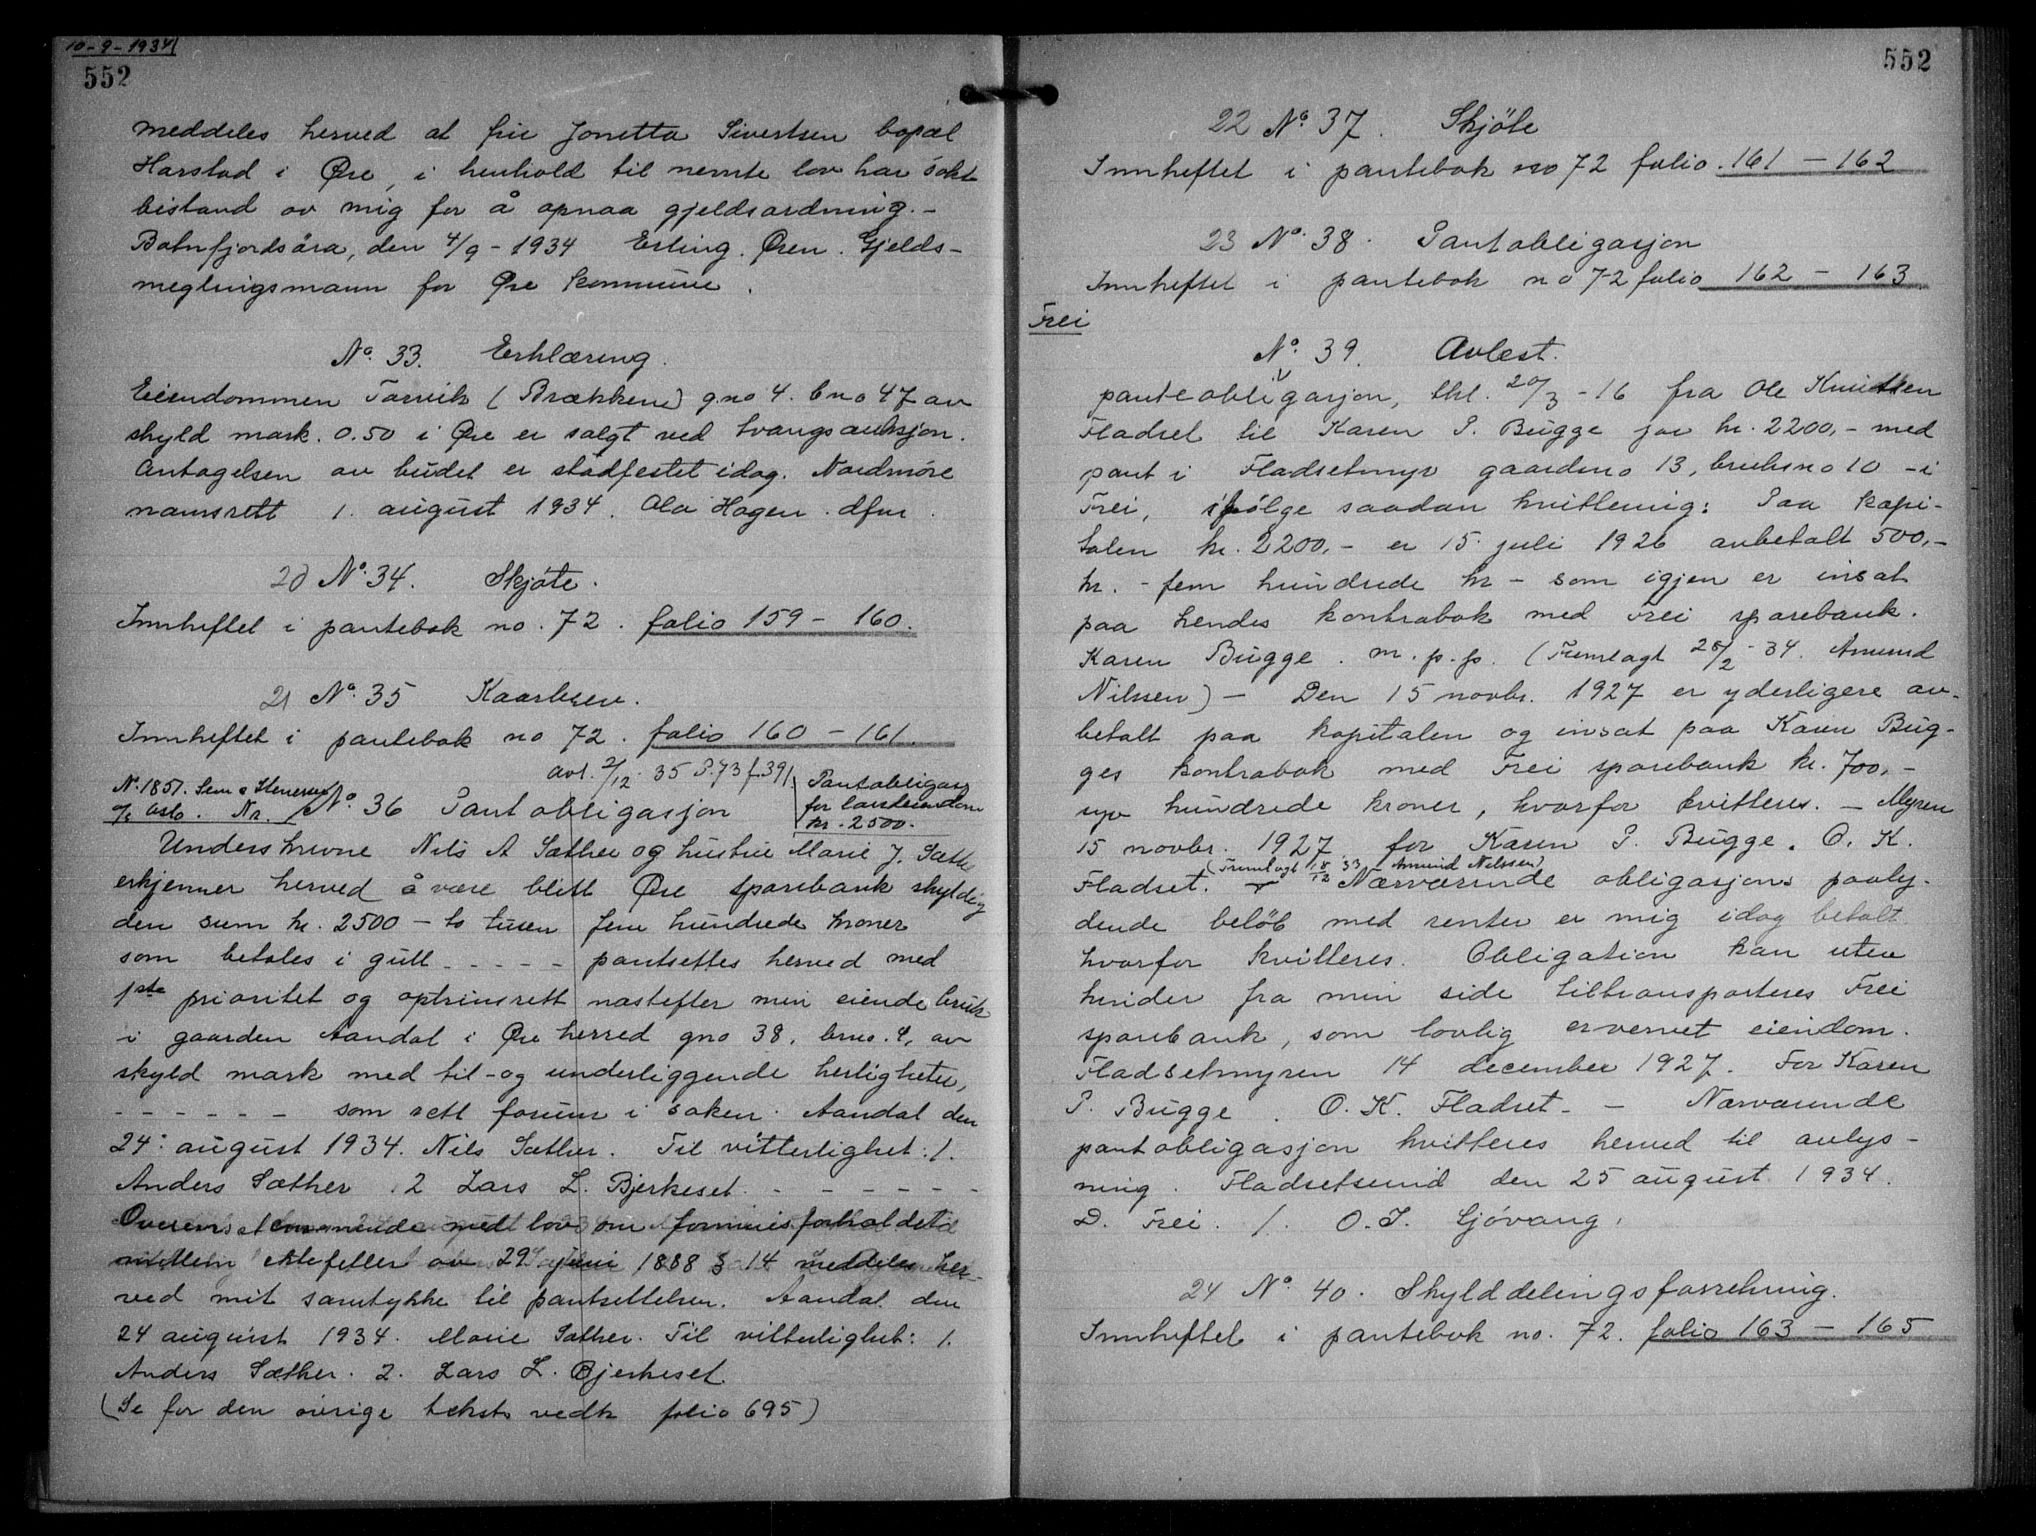 10-9-1934
552
meddeles herved at frue Jonetta Sivertsen bopæl
Harstad i Øre, i henhold til nemte lov har søkt
bistand av mig for å opnaa gjeldsordning.-
Batnfjordsøra, den 4/9 - 1934 Erling Øren. Gjelds-
meglingsmann for Øre kommune.
No. 33. Erklæring.
Eiendommen Torvik (Brækken) g.no 4. b no 47 av
skyld mark. 0.50 i Øre er solgt ved tvangsauksjon.
Antagelsen av budet er stadfestet idag. Nordmøre
namsrett 1. august 1934. Ola Hagen. dfm.
20 No. 34. Skjøte.
Innheftet i pantebok no. 72. folio 159 - 160.
21 No. 35 Kaarbrev.
Innheftet i pantebok no 72. folio 160 - 161.
avl. 2/12 - 35 P.73 f.391.
No. 1851. Sem & Stenersen
A/S Oslo. Nr.
No. 36 Pantobligasjon
Pantobligasj
for landeiendom
kr. 2500.-
Underskrevne Nils A Sæther og hustru Marie J. Sæth
erkjenner herved å være blitt Øre sparebank skyldig
den sum kr. 2500 - to tusen fem hundrede kroner
som betales i gull - - - - - pantsettes herved med
1ste prioritet og optrinsrett næstefter min eiende bruk
i gaarden Aandal i Øre herred gno 38, brno. 4, av
skyld mark med til- og underliggende herligheter,
- - - - - - som rett forum i saken. Aandal den
24: august 1934. Nils Sæther. Til vitterlighet: 1.
Anders Sæther. 2 Lars L. Bjerkeset. - - - - - -
Overensstemmende med lov om formuesforholdet
mellem Ektefeller av 29 juni 1888 § 14 meddeles her-
ved mit samtykke til pantsettelsen. Aandal den
24 august 1934. Marie Sæther. Til vitterlighet: 1.
Anders Sæther. 2. Lars L. Bjerkeset
(Se for den øvrige tekst vedk folio 695)
552
22 No. 37. Skjöte
Innheftet i pantebok no 72 folio. 161 - 162
23 No. 38. Pantobligasjon
Innheftet i pantebok no 72 folio 162 - 163
Frei
No. 39. Avlest.
panteobligasjon, tkl. 20/3 - 16 fra Ole Knudtsen
Fladset til Karen P. Bugge for kr. 2200,- med
pant i Fladsetmyr gaardeno 13, bruksno 10 - i
Frei, ifølge saadan kvittering: Paa kapi-
talen kr. 2200,- er 15. juli 1926 avbetalt 500,-
kr. - fem hundrede kr - som igjen er insat
paa hendes kontrabok med Frei sparebank.
Karen Bugge. m. p. p. (Fremlagt 28/2 - 34. Amund
Nilssen) - Den 15 novbr. 1927 er yderligere av-
betalt paa kapitalen og insat paa Karen Bug-
ges kontrabok med Frei sparebank kr. 700,-
syv hundrede kroner, hvorfor kvitteres. - Myren
15 novbr. 1927 for Karen P. Bugge. O. K.
(Fremlagt 18/12 33 Amund Nilssen)
Fladset. - Nærværende obligasjons paaly-
dende beløb med renter er mig idag betalt
hvorfor kvitteres. Obligation kan uten
hinder fra min side tiltransporteres Frei
sparebank, som lovlig ervervet eiendom.
Fladsetmyren 14 december 1927. For Karen
P. Bugge. O. K. Fladset. - Nærværende
pantobligasjon kvitteres herved til avlys-
ning. Fladsetsund den 25 august 1934.
D. Frei. 1. O. J. Gjøvang.
24 No. 40. Skylddelingsforretning.
Innheftet i pantebok no. 72. folio 163 - 165